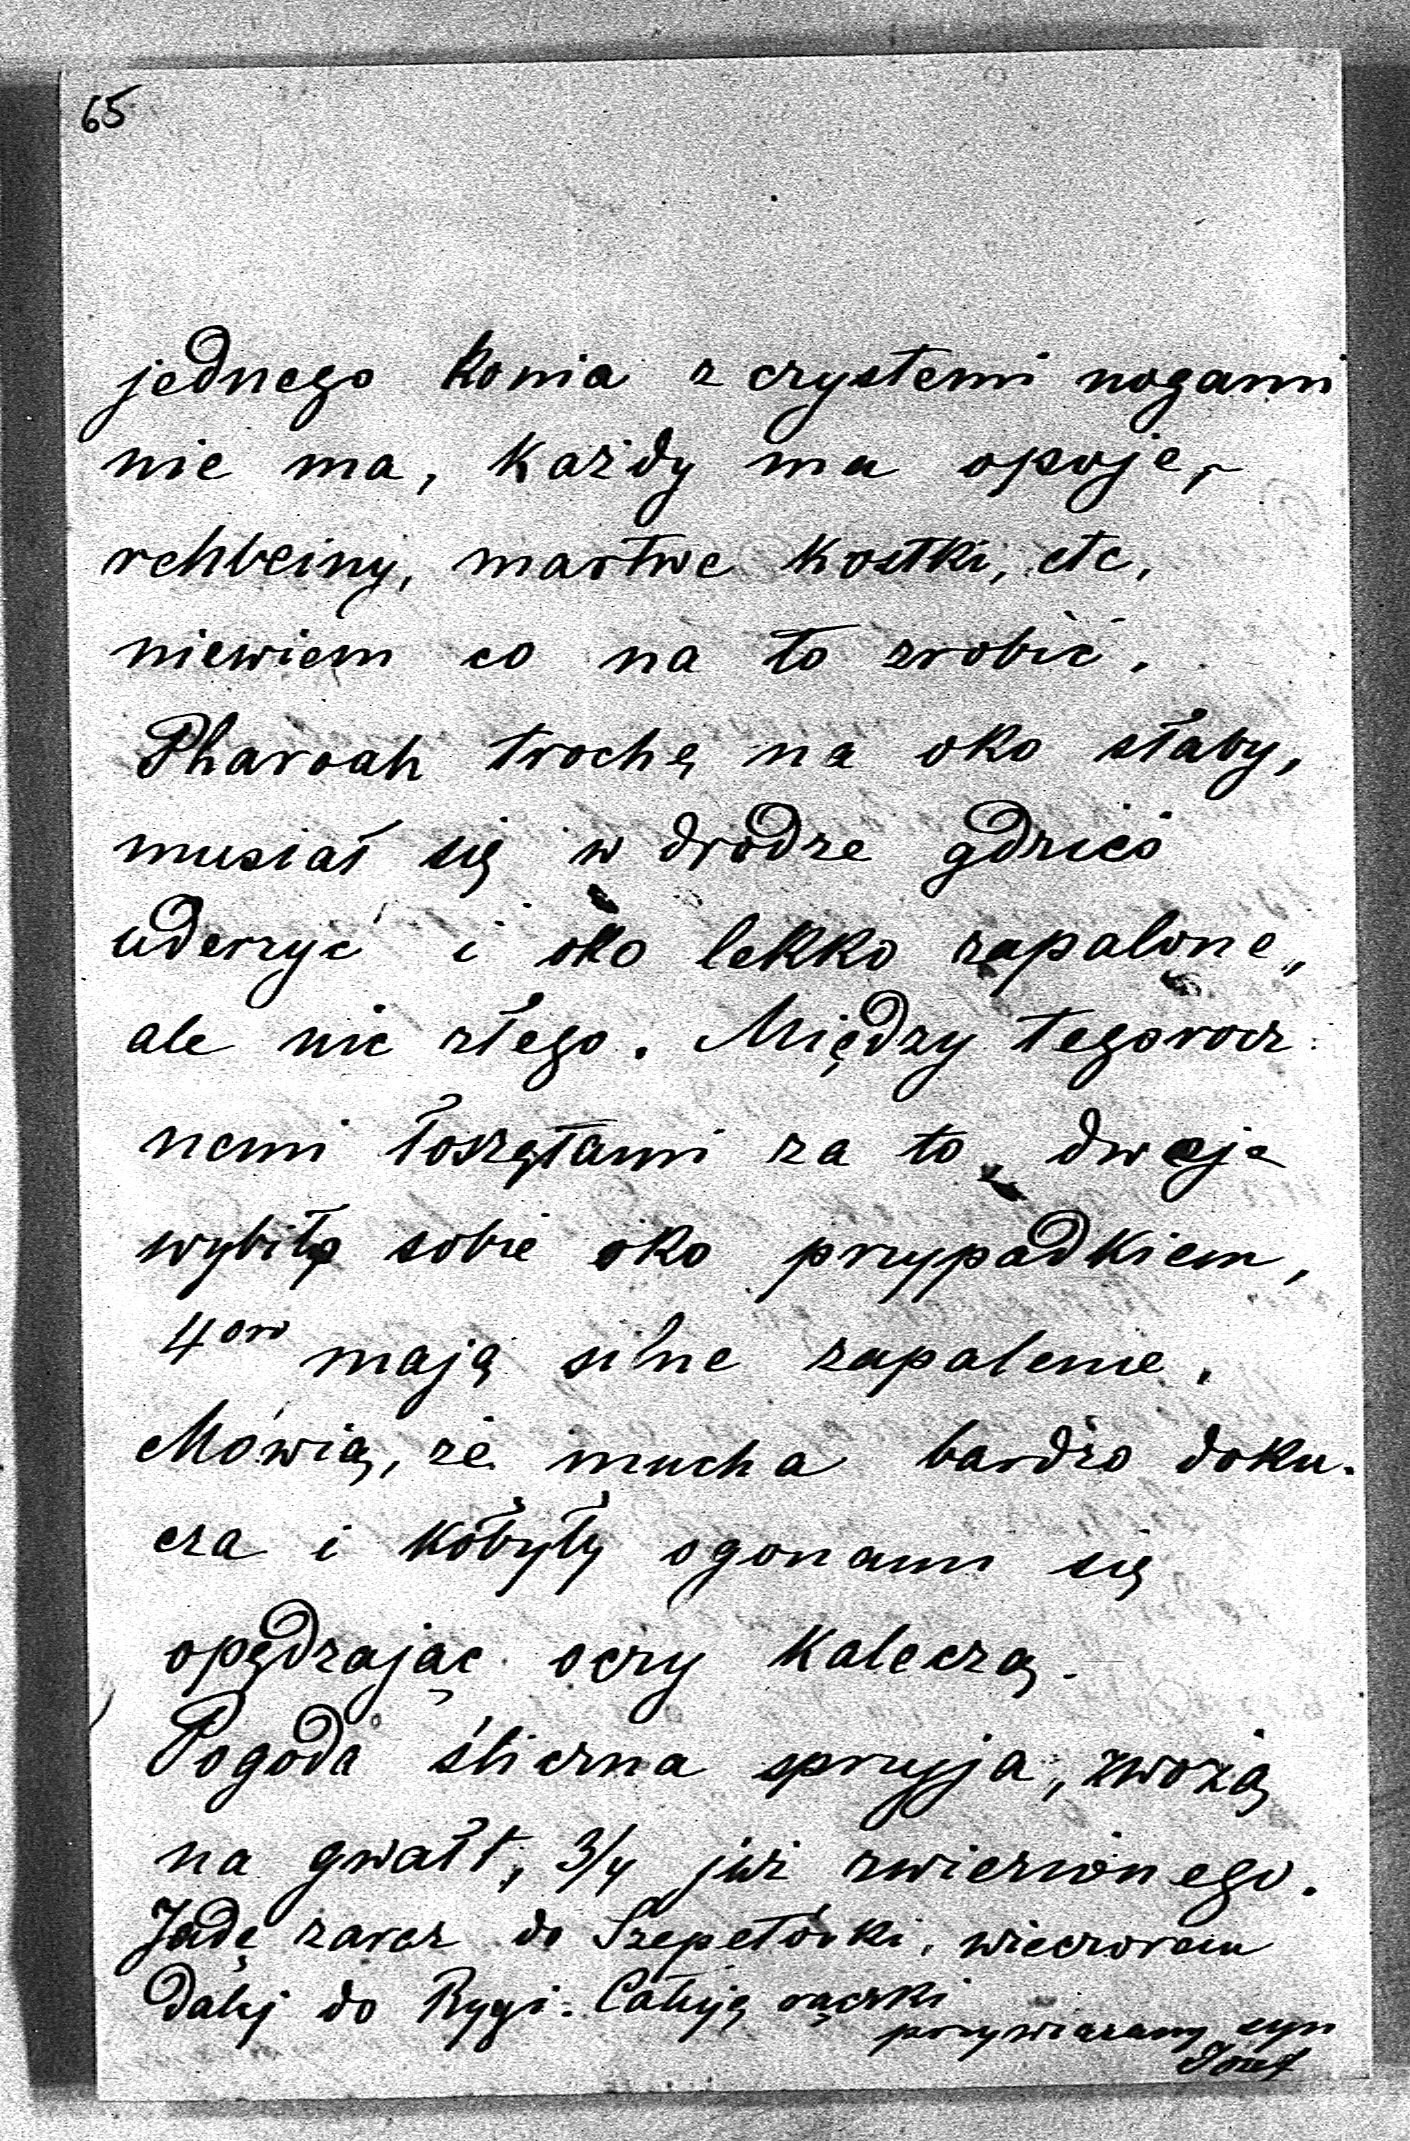 65
jednego konia z czystemi nogami
nie ma, każdy ma opoje,
rehbeiny, martwe kostki, etc,
niewiem co na to zrobić.
Pharoah trochę na oko słaby,
musiał się w drodze gdzieś
uderzyć i oko lekko zapalone,
ale nic złego. Między tegorocz
nemi łoszętami za to, dwoje
wybiło sobie oko przypadkiem,
4oro mają silne zapalenie.
Mówią, że mucha bardzo doku.
cza i kobyły ogonami się
opędzając oczy kaleczą.
Pogoda śliczna sprzyja, zwożą
na gwałt, 3/4 już zwiezionego.
Jadę zaraz do Szepetówki, wieczorem
dalej do Rygi. Całuję rączki
przywiązany syn
Józef